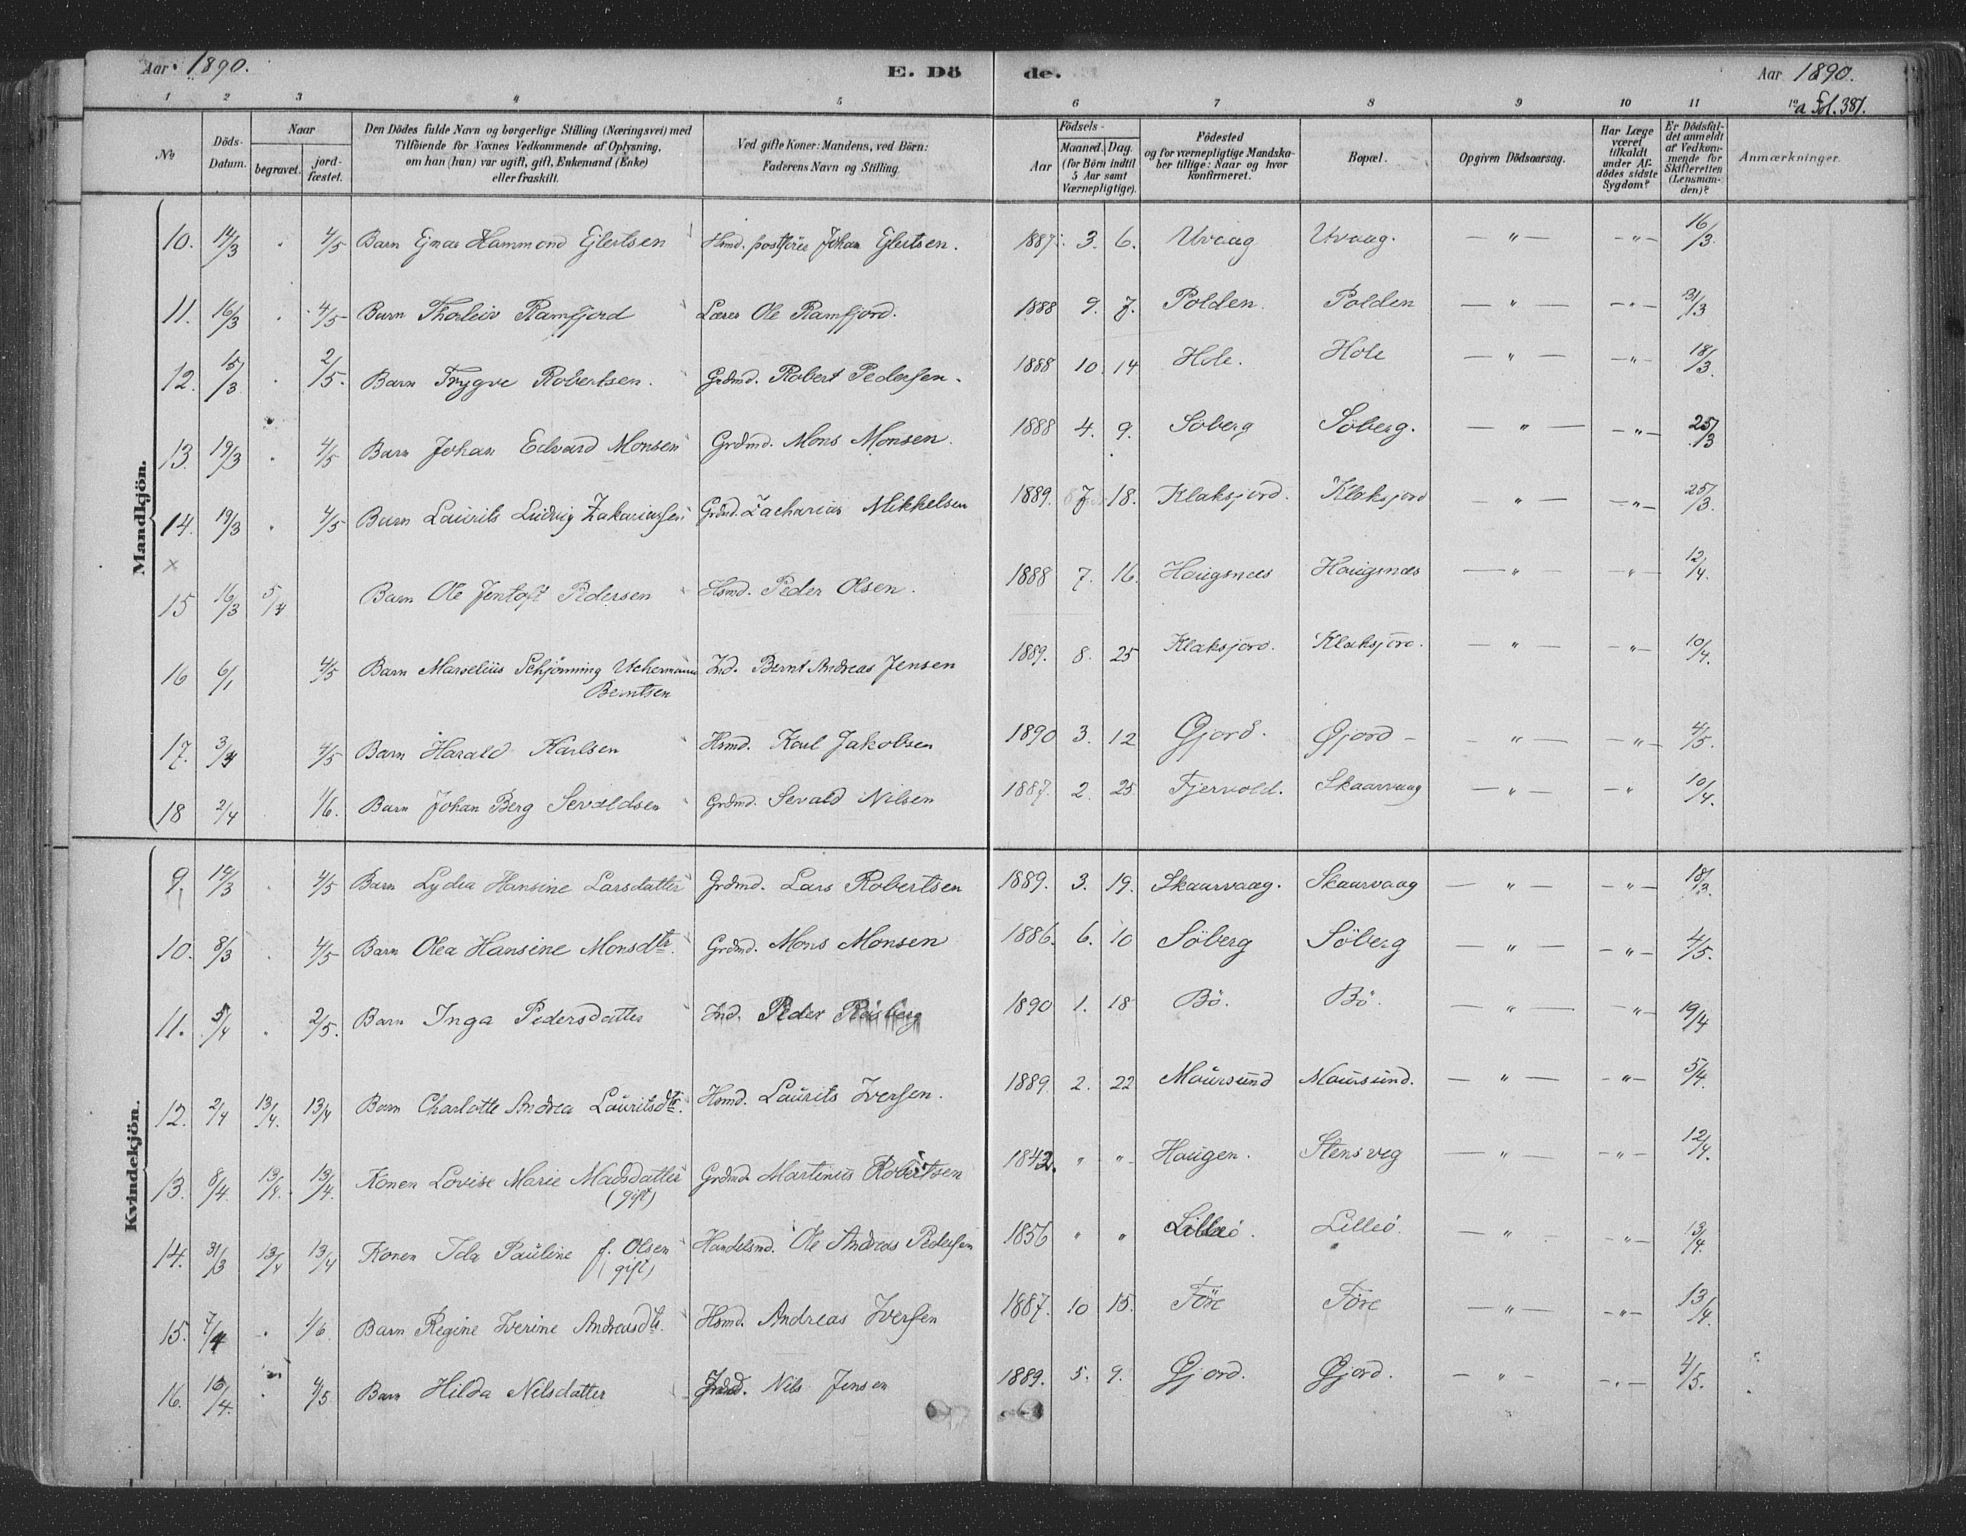 Aar 1890.
E. Dö
de.
Aar 1890.
1 2 3 4 5 6 7 8 9 10 11 12
a Fol. 381.
No
Döds-Datum.
Naar
begravet.
jord-fæstet.
Den Dödes fulde Navn og borgerlige Stilling (Næringsvei) med
Tilföiende for Voxnes Vedkommende af Oplysning,
om han (hun) var ugift, gift, Enkemand (Enke)
eller fraskilt.
Ved gifte Koner: Mandens, ved Börn:
Faderens Navn og Stilling.
Födsels-
Aar
Maaned. Dag.
(for Börn indtil 5 Aar samt Værnepligtige).
Födested
og for værnepligtige Mandska-
ber tillige: Naar og hvor
konfirmeret.
Bopæl.
Opgiven Dödsaarsag.
Har Læge været tilkaldt under Af-dödes sidste Sygdom?
Er Dödsfal-det anmeldt af Vedkom-mende for Skifteretten (Lensman-den)?
Anmærkninger.
Mandkjön.
10. 14/3 " 4/5 Barn Ejnar Hammond Ejlertsen Hsmd. postfører Johan Ejlertsen. 1887. 3. 6. Uvaag Uvaag. — " — - " - 16/3.
11. 16/3 . 4/5 Barn Thorleiv Ramfjord Lærer Ole Ramfjord. 1888 9. 7. Polden. Polden — " — - " - 21/3
12. 15/3 . 2/5. Barn Trygve Robertsen. Grdmd. Robert Pedersen. 1888 10. 14 Hole. Hole — " — - " - 18/3.
13. 19/3 . 4/5 Barn Johan Edvard Monsen Grdmd. Mons Monsen. 1888 4. 9. Söberg Söberg. — " — - " - 25/3
14. 19/3 . 4/5 Barn Laurits Ludvig Zakariassen Grdmd. Zacharias Mikkelsen 1889. 7 18. Klaksjord. Klaksjord — " — - " - 25/3.
x
15 16/3 5/4 Barn Ole Jentoft Pedersen Hsmd. Peder Olsen. 1888 7. 16. Haugsnæs Haugsnæs — " — " 12/4.
16 6/1 4/5 Barn Marselius Schjönning Uchermann Berntsen Ind. Bernt Andreas Jensen 1889. 8. 25 Klaksjord. Klaksjord. — " — - " - 10/4.
17. 3/4 4/5 Barn Harald Karlsen Hsmd. Karl Jakobsen 1890 3. 12 Gjord. Gjord - — " — - " - 4/5.
18 2/4 1/6. Barn Johan Berg Sevaldsen Grdmd. Sevald Nilsen 1887. 2. 25 Fjervold. Skaarvaag — " — " 10/4.
Kvindekjön.
9. 14/3 . 4/5 Barn Lydia Hansine Larsdatter Grdmd. Lars Robertsen 1889. 3. 19. Skaarvaag. Skaarvaag — " — - " - 18/3.
10. 8/3 . 4/5 Barn Olea Hansine Monsdtr. Grdmd. Mons Monsen 1886. 6. 10 Söberg Söberg — " — - " - 4/5.
11. 5/4 . 2/5. Barn Inga Pedersdatter Ind. Peder 1890 1. 18 Bö. Bö. — " — " - 19/4
12. 2/4 13/4. 13/4 Barn Charlotte Andrea Lauritsdtr. Hsmd. Laurits Iversen. 1889. 2. 22 Maursund Maursund. — " — - " - 5/4.
13. 8/4. 13/4. 13/4. Konen Lovise Marie Madsdatter (gift) Grdmd. Martinus Robertsen 1842. " " Haugen. Stensveg — " — - " - 12/4.
14. 31/3 13/4 13/4 Konen Ida Pauline f. Olsen (gift) Handelsmd. Ole Andreas Pedersen 1856 " " Lilleö. Lilleö — " . - " - 13/4.
15. 7/4 . 1/6. Barn Regine Iverine Andreasdtr. Hsmd. Andreas Iversen 1887. 10 15. Före Före — " — - " - 13/4.
16. 10/4. . 4/5 Barn Hilda Nilsdatter Nils Jensen 1889. 5. 9. Gjord. Gjord. — " - - " - 4/5.